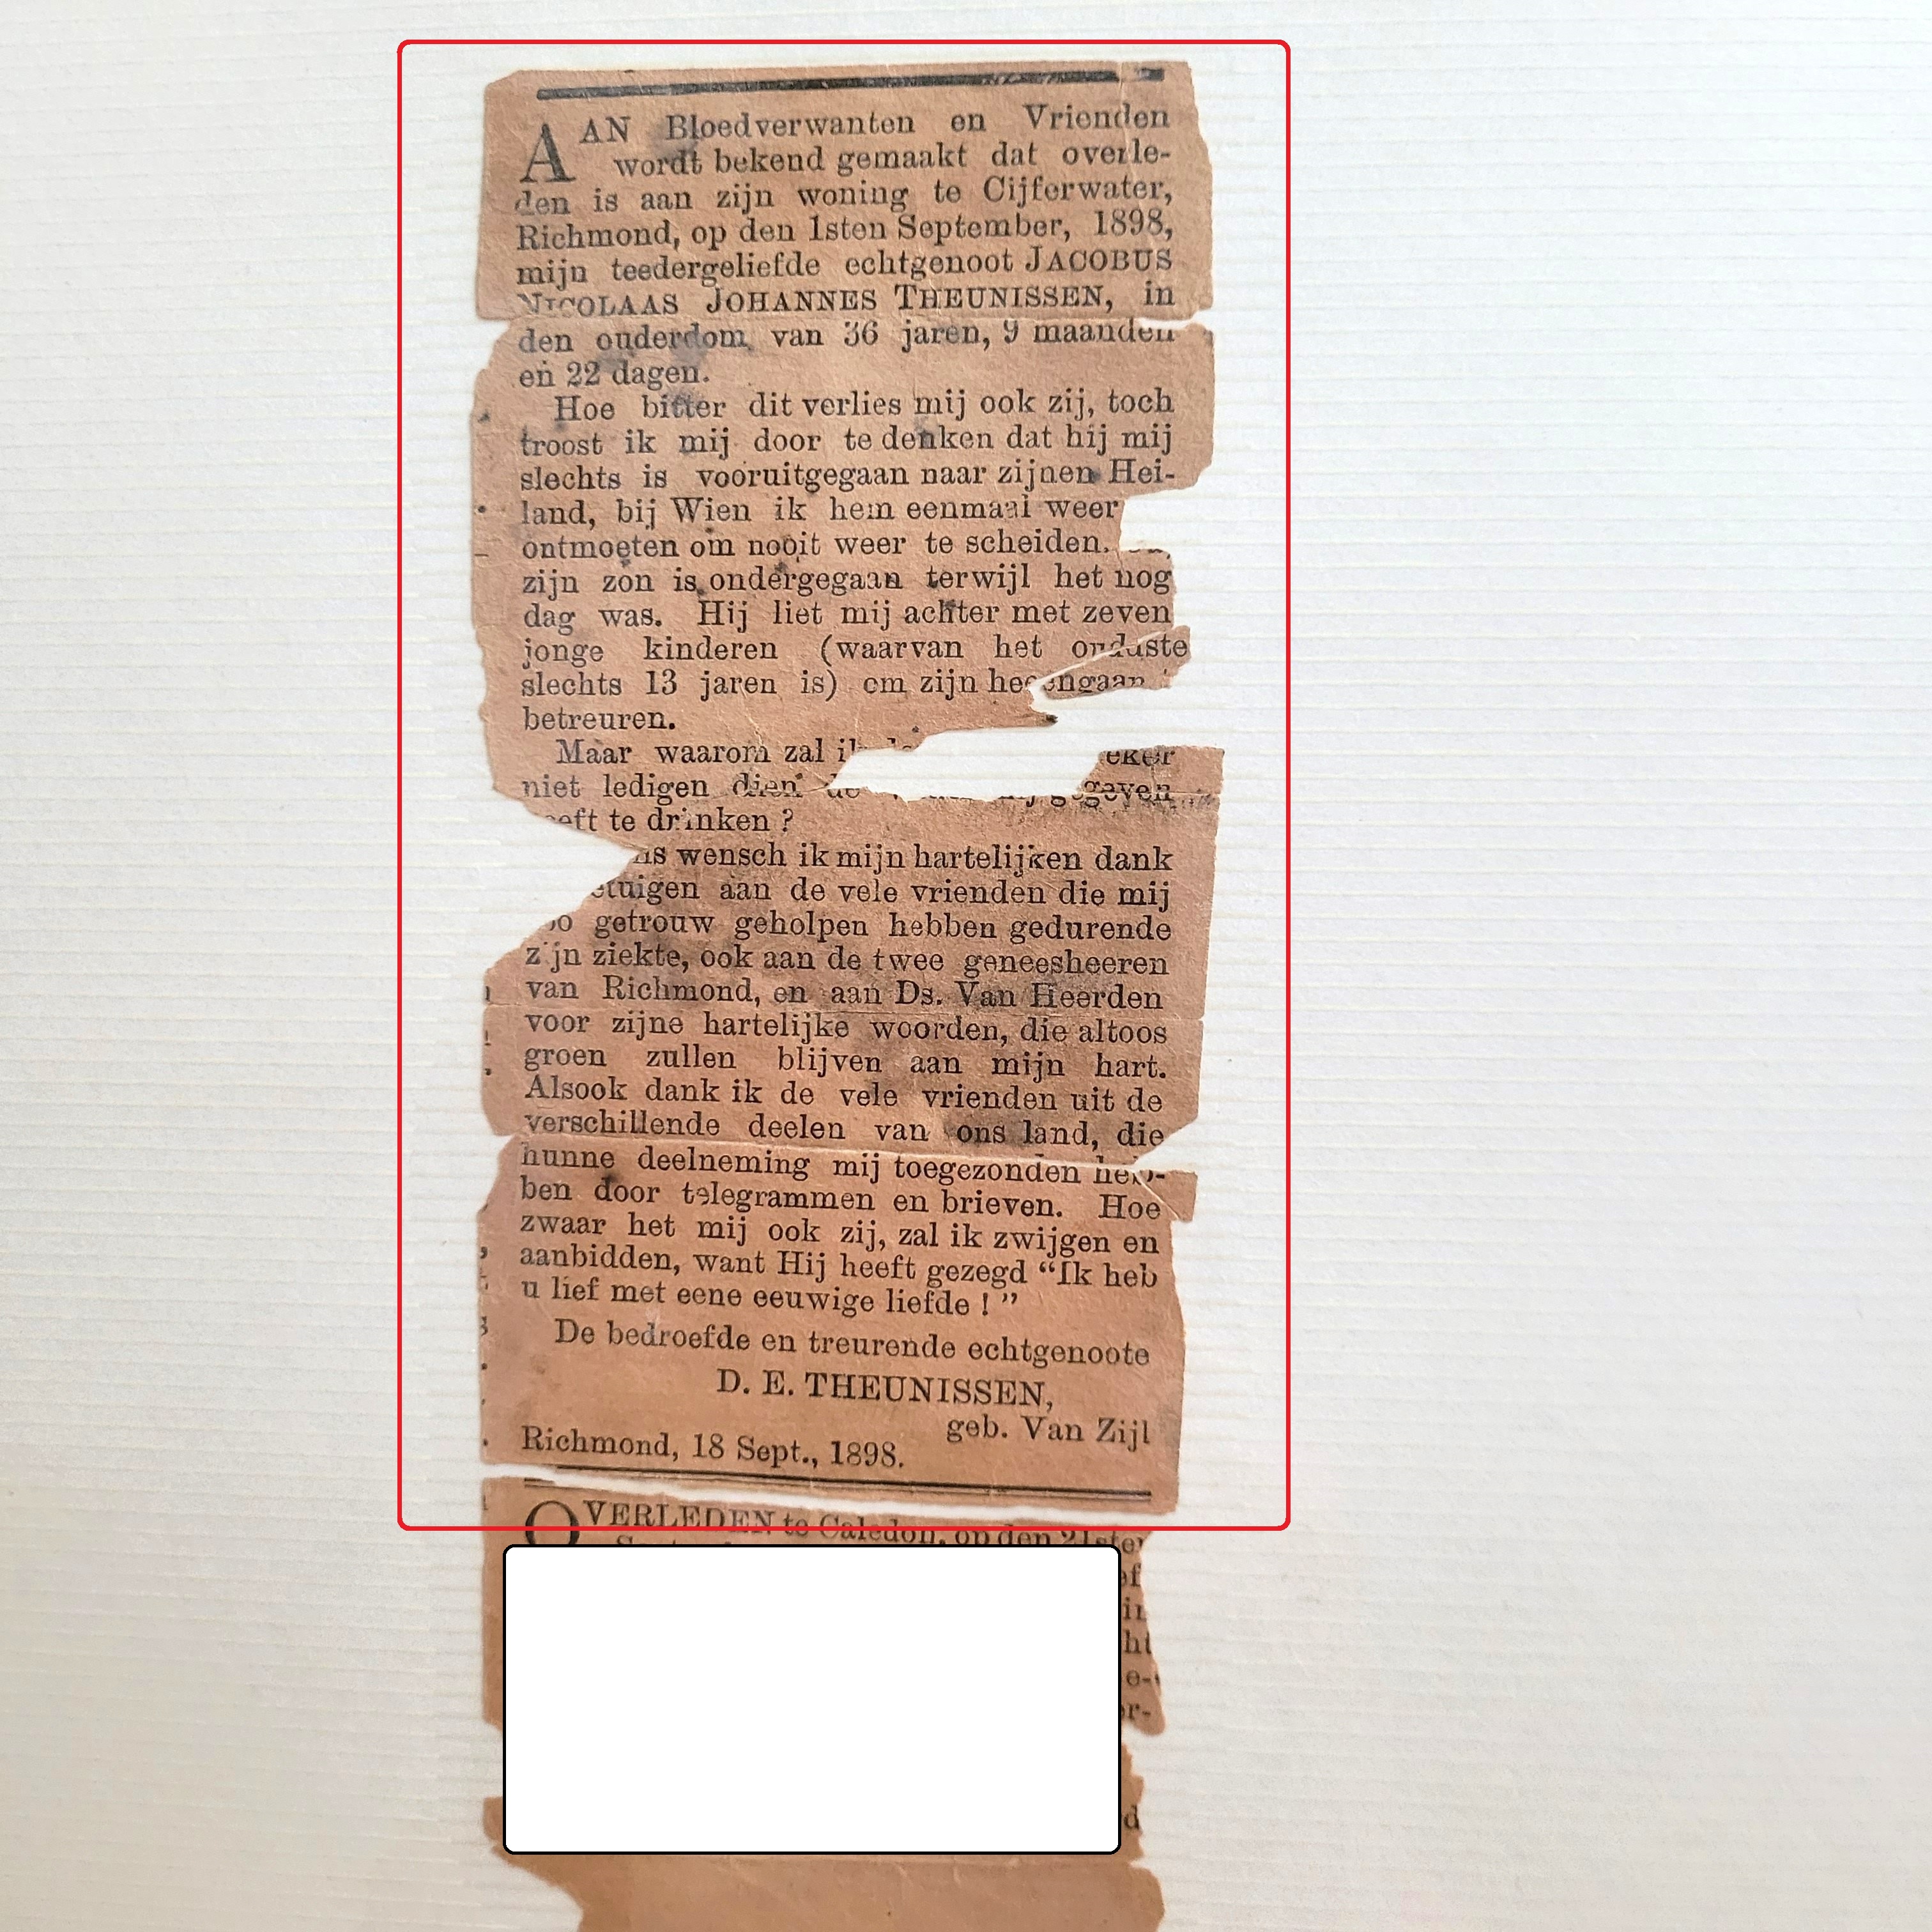 AAN Bloedverwanten en Vrienden
wordt bekend gemaakt dat overle-
den is aan zijn woning te Cijferwater,
Richmond, op den 1sten September, 1898,
mijn teedergeliefde echtgenoot JACOBUS
NICOLAAS JOHANNES THEUNISSEN, in
den ouderdom van 36 jaren, 9 maanden
en 22 dagen.
Hoe bitter dit verlies mij ook zij, toch
troost ik mij door te denken dat hij mij
slechts is vooruitgegaan naar zijnen Hei-
land, bij Wien ik hem eenmaal weer
ontmoeten om nooit weer te scheiden.
zijn zon is ondergegaan terwijl het nog
dag was. Hij liet mij achter met zeven
jonge kinderen (waarvan het oudste
slechts 13 jaren is) om zijn heengaan
betreuren.
Maar waarom zal ik
niet ledigen dien gegeven
te drinken ?
wensch ik mijn hartelijken dank
aan de vele vrienden die mij
getrouw geholpen hebben gedurende
zijn ziekte, ook aan de twee geneesheeren
van Richmond, en aan Ds. Van Heerden
voor zijne hartelijke woorden, die altoos
groen zullen blijven aan mijn hart.
Alsook dank ik de vele vrienden uit de
verschillende deelen van ons land, die
hunne deelneming mij toegezonden heb-
ben door telegrammen en brieven. Hoe
zwaar het mij ook zij, zal ik zwijgen en
aanbidden, want Hij heeft gezegd “Ik heb
u lief met eene eeuwige liefde ! ”
De bedroefde en treurende echtgenoote
D. E. THEUNISSEN,
geb. Van Zijl
Richmond, 18 Sept., 1898.
OVERLEDEN te Caledon, op den 21sten